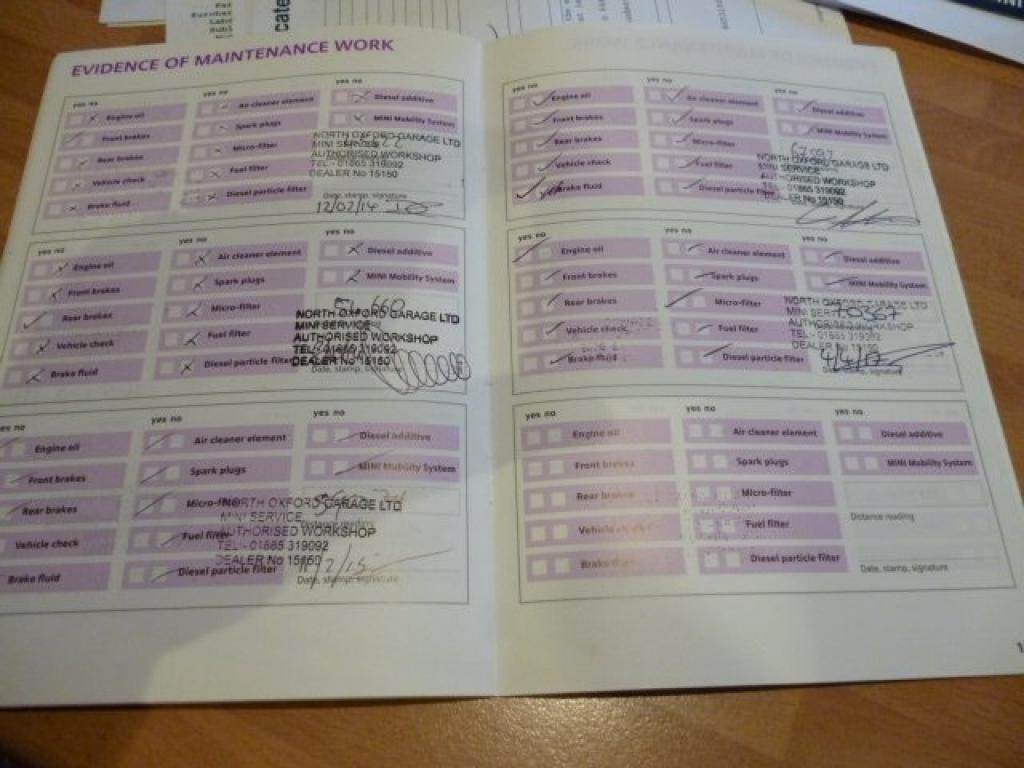 cate
EVIDENCE OF MAINTENANCE WORK
yes no
Engine oil
Front brakes
Rear brakes
Vehicle check
Brake fluid
yes no
Air cleaner element
Spark plugs
Micro-filter
Fuel filter
Diesel particle filter
yes no
Diesel additive
MINI Mobility System
NORTH OXFORD GARAGE LTD
MINI SERVICE
AUTHORISED WORKSHOP
TEL:- 01865 319092
DEALER No 15150
Date, stamp, signature
12/02/14
yes no
Engine oil
Front brakes
Rear brakes
Vehicle check
Brake fluid
yes no
Air cleaner element
Spark plugs
Micro-filter
Fuel filter
Diesel particle filter
yes no
Diesel additive
MINI Mobility System
NORTH OXFORD GARAGE LTD
MINI SERVICE
AUTHORISED WORKSHOP
TEL:- 01865 319092
DEALER No 15150
Date, stamp, signature
yes no
Engine oil
Front brakes
Rear brakes
Vehicle check
Brake fluid
yes no
Air cleaner element
Spark plugs
Micro-filter
Fuel filter
Diesel particle filter
yes no
Diesel additive
MINI Mobility System
NORTH OXFORD GARAGE LTD
MINI SERVICE
AUTHORISED WORKSHOP
TEL:- 01865 319092
DEALER No 15150
Date, stamp, signature
yes no
Engine oil
Front brakes
Rear brakes
Vehicle check
Brake fluid
yes no
Air cleaner element
Spark plugs
Micro-filter
Fuel filter
Diesel particle filter
yes no
Diesel additive
MINI Mobility System
NORTH OXFORD GARAGE LTD
MINI SERVICE
AUTHORISED WORKSHOP
TEL:- 01865 319092
DEALER No 15150
yes no
Engine oil
Front brakes
Rear brakes
Vehicle check
Brake fluid
yes no
Air cleaner element
Spark plugs
Micro-filter
Fuel filter
Diesel particle filter
yes no
Diesel additive
MINI Mobility System
NORTH OXFORD GARAGE LTD
MINI SERVICE
AUTHORISED WORKSHOP
TEL:- 01865 319092
DEALER No 15150
4/4/17
Date, stamp, signature
yes no
Engine oil
Front brakes
Rear brakes
Vehicle check
Brake fluid
yes no
Air cleaner element
Spark plugs
Micro-filter
Fuel filter
Diesel particle filter
yes no
Diesel additive
MINI Mobility System
Distance reading
Date, stamp, signature